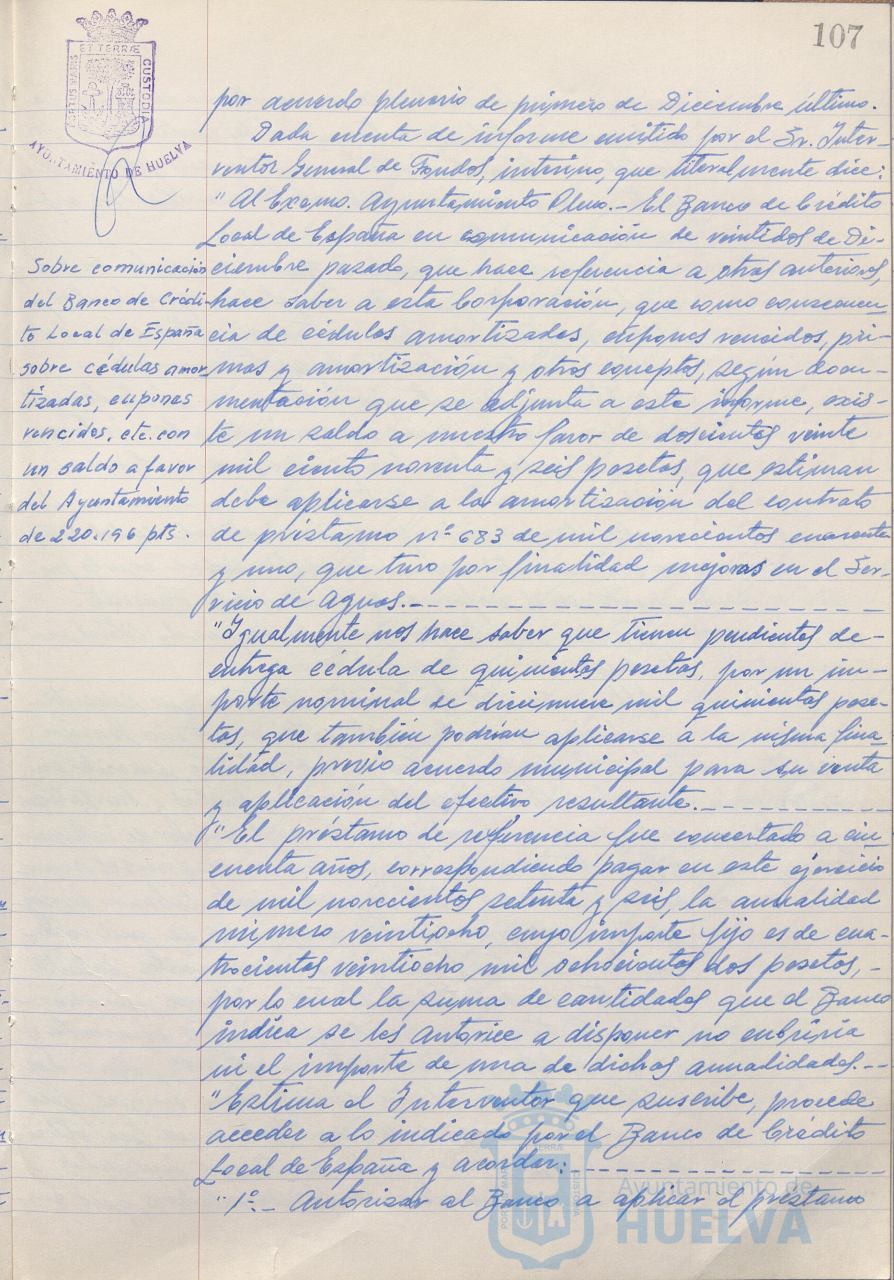 107
ET TERRÆ
PORTUS MARIS
CUSTODIA
AYUNTAMIENTO DE HUELVA
por acuerdo plenario de primero de Diciembre último.
Dada cuenta de informe emitido por el Sr. Inter-
ventor General de Fondos, interino, que literalmente dice:
"Al Excmo. Ayuntamiento Pleno.- El Banco de Crédito
Local de España en comunicación de veintidos de Di-
ciembre pasado, que hace referencia a otras anteriores,
hace saber a esta Corporación, que como consecuen-
cia de cédulas amortizadas, cupones vencidos, pri-
mas y amortización y otros conceptos, según docu-
mentación que se adjunta a este informe, exis-
te un saldo a nuestro favor de doscientas veinte
mil ciento noventa y seis pesetas, que estiman
debe aplicarse a la amortización del contrato
de préstamo nº 683 de mil novecientos cuarenta
y uno, que tuvo por finalidad mejoras en el Ser-
vicio de Aguas.-
"Igualmente nos hace saber que tienen pendientes de-
entrega cédula de quinientas pesetas, por un im-
porte nominal de diecinueve mil quinientas pese-
tas, que también podrían aplicarse a la misma fina-
lidad, previo acuerdo municipal para su venta
y aplicación del efectivo resultante.-
"El préstamo de referencia fue concertado a cin-
cuenta años, correspondiendo pagar en este ejercicio
de mil novecientos setenta y seis, la anualidad
número veintiocho, cuyo importe fijo es de cua-
trocientas veintiocho mil ochocientas dos pesetas,-
por lo cual la suma de cantidades que el Banco
indica se les autorice a disponer no cubriría
ni el importe de una de dichas anualidades.--
"Estima el Interventor que suscribe, procede
acceder a lo indicado por el Banco de Crédito
Local de España y acordar:
"1º.- Autorizar al Banco a aplicar el préstamo
Sobre comunicación
del Banco de Crédi-
to Local de España
sobre cédulas amor
tizadas, cupones
vencidos, etc. con
un saldo a favor
del Ayuntamiento
de 220.196 pts.
Ayuntamiento de
HUELVA